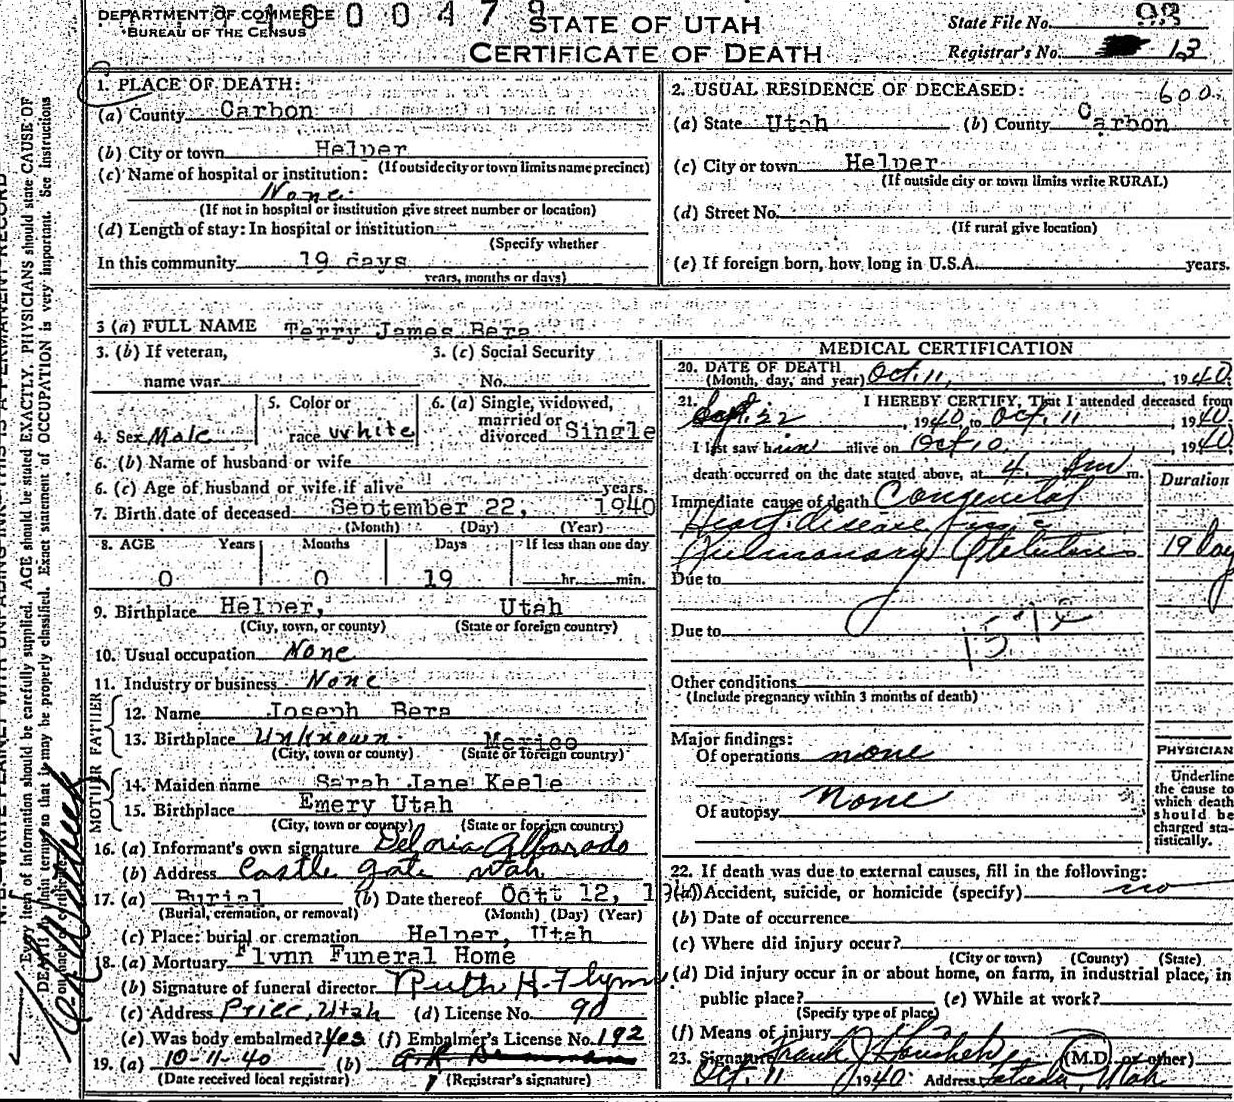 DEPARTMENT OF COMMERCE
BUREAU OF THE CENSUS
0 0 0 4 7 9
STATE OF UTAH
CERTIFICATE OF DEATH
State File No. 93
Registrar's No. 13
1. PLACE OF DEATH:
(a) County Carbon
(b) City or town Helper
(If outside city or town limits name precinct)
(c) Name of hospital or institution:
None
(If not in hospital or institution give street number or location)
(d) Length of stay: In hospital or institution
(Specify whether
In this community 19 days
years, months or days)
2. USUAL RESIDENCE OF DECEASED: 600
(a) State Utah (b) County Carbon
(c) City or town Helper
(If outside city or town limits write RURAL)
(d) Street No.
(If rural give location)
(e) If foreign born, how long in U.S.A. years.
3 (a) FULL NAME Terry James Bera
3. (b) If veteran, 3. (c) Social Security
name war No.
4. Sex Male 5. Color or race White 6. (a) Single, widowed, married or divorced Single
6. (b) Name of husband or wife
6. (c) Age of husband or wife if alive years.
7. Birth date of deceased September 22, 1940
(Month) (Day) (Year)
8. AGE Years Months Days If less than one day
0 0 19 hr. min.
9. Birthplace Helper, Utah
(City, town, or county) (State or foreign country)
10. Usual occupation None
11. Industry or business None
FATHER
12. Name Joseph Bera
13. Birthplace Unknown Mexico
(City, town or county) (State or foreign country)
MOTHER
14. Maiden name Sarah Jane Keele
15. Birthplace Emery Utah
(City, town or county) (State or foreign country)
16. (a) Informant's own signature Deloria Alborado
(b) Address Castle gate Utah
17. (a) Burial (b) Date thereof Octt 12, 1940
(Burial, cremation, or removal) (Month) (Day) (Year)
(c) Place: burial or cremation Helper, Utah
18. (a) Mortuary Flynn Funeral Home
(b) Signature of funeral director Ruth H. Flynn
(c) Address Price, Utah (d) License No. 90
(e) Was body embalmed? Yes (f) Embalmer's License No. 192
19. (a) 10-11-40 (b)
(Date received local registrar) (Registrar's signature)
MEDICAL CERTIFICATION
20. DATE OF DEATH
(Month, day, and year) Oct. 11, 1940
21. I HEREBY CERTIFY, That I attended deceased from
Sept. 22, 1940 to Oct. 11 1940
I last saw him alive on Oct 10, 1940
death occurred on the date stated above, at 4 m.
Duration
Immediate cause of death Congenital
Heart disease
Pulmonary 19 Day
Due to
Due to
Other conditions
(Include pregnancy within 3 months of death)
Major findings:
Of operations none
Of autopsy None
PHYSICIAN
Underline
the cause to
which death
should be
charged sta-
tistically.
22. If death was due to external causes, fill in the following:
(a) Accident, suicide, or homicide (specify) no
(b) Date of occurrence
(c) Where did injury occur?
(City or town) (County) (State)
(d) Did injury occur in or about home, on farm, in industrial place, in
public place? (e) While at work?
(Specify type of place)
(f) Means of injury
23. Signature Frank J (M.D. or other)
Oct. 11 1940 Address Utah
Every item of information should be carefully supplied. AGE should be stated EXACTLY. PHYSICIANS should state CAUSE OF
may be properly classified. Exact statement of OCCUPATION is very important. See instructions